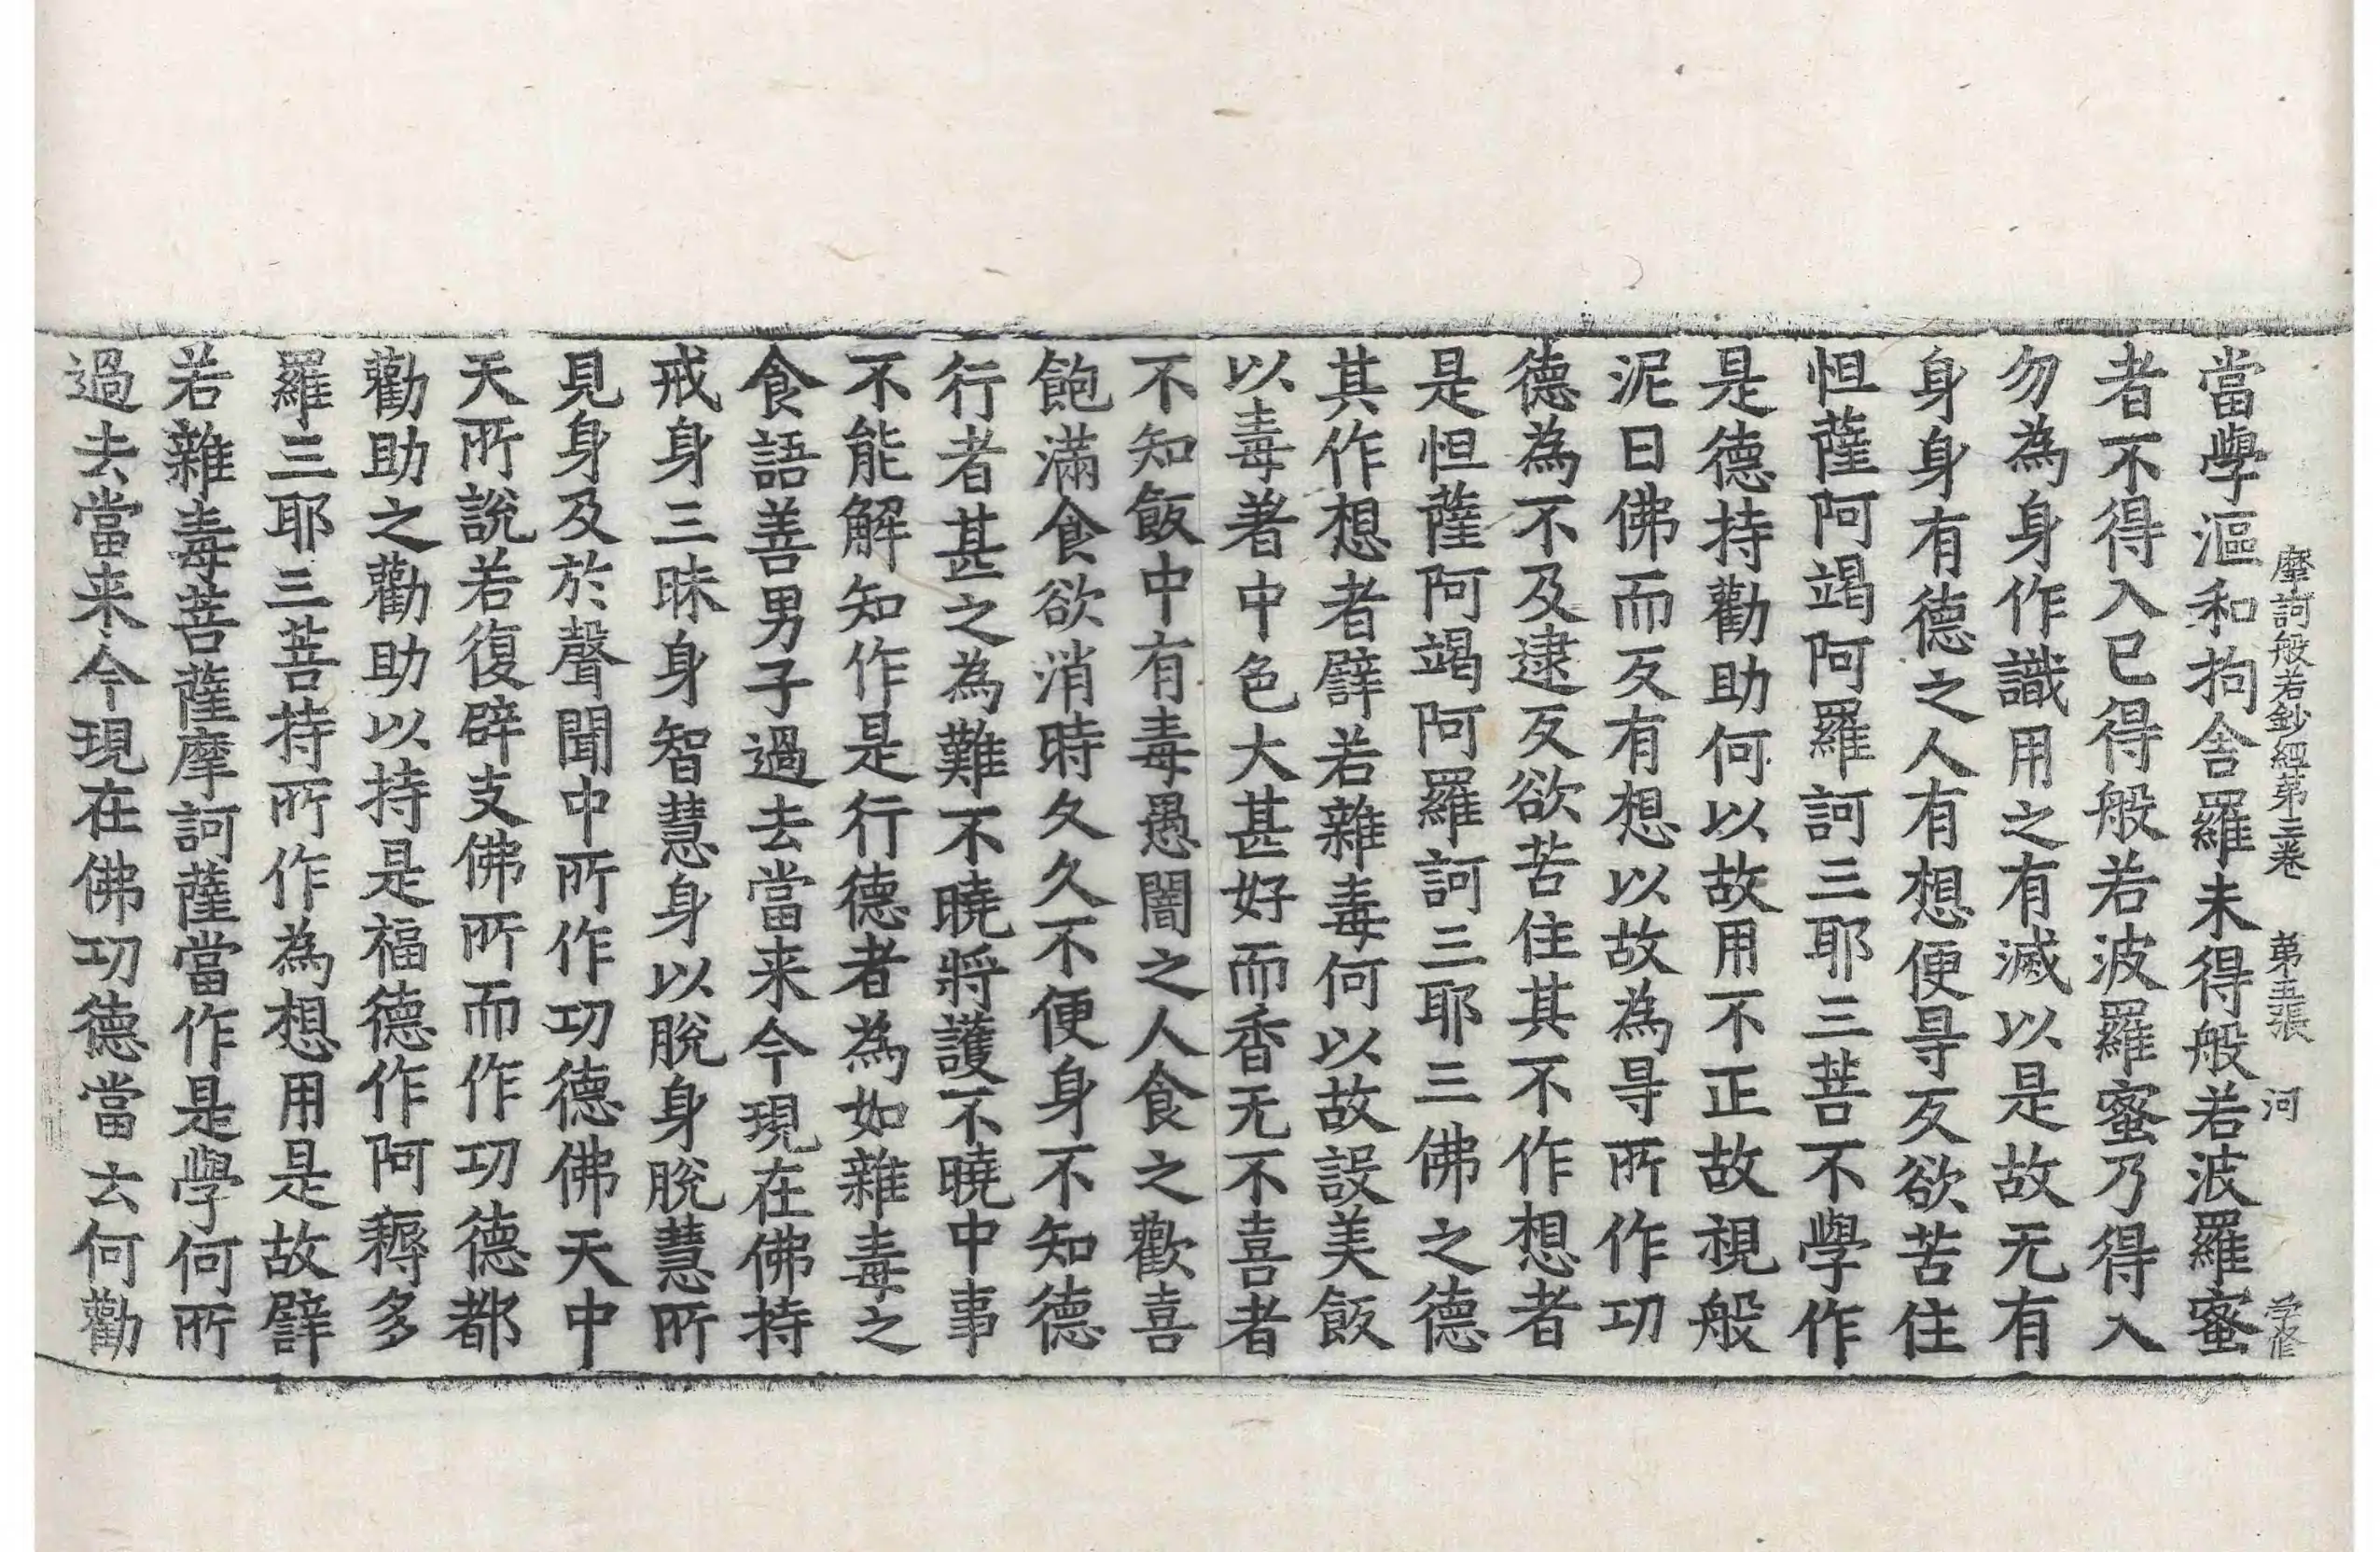 摩訶般若鈔經第三卷　第五張　河　学修
當學漚和拘舍羅未得般若波羅蜜
者不得入已得般若波羅蜜乃得入
勿為身作識用之有滅以是故无有
身身有德之人有想便㝵反欲苦住
怛薩阿竭阿羅訶三耶三菩不學作
是德持勸助何以故用不正故視般
泥曰佛而反有想以故為㝵所作功
德為不及逮反欲苦住其不作想者
是怛薩阿竭阿羅訶三耶三佛之德
其作想者譬若雜毒何以故設美飯
以毒著中色大甚好而香无不喜者
不知飯中有毒愚闇之人食之歡喜
飽滿食欲消時久久不便身不知德
行者甚之為難不曉將護不曉中事
不能解知作是行德者為如雜毒之
食語善男子過去當来今現在佛持
戒身三昧身智慧身以脫身脫慧所
見身及於聲聞中所作功德佛天中
天所說若復辟支佛所而作功德都
勸助之勸助以持是福德作阿耨多
羅三耶三菩持所作為想用是故譬
若雜毒菩薩摩訶薩當作是學何所
過去當来今現在佛功德當云何勸